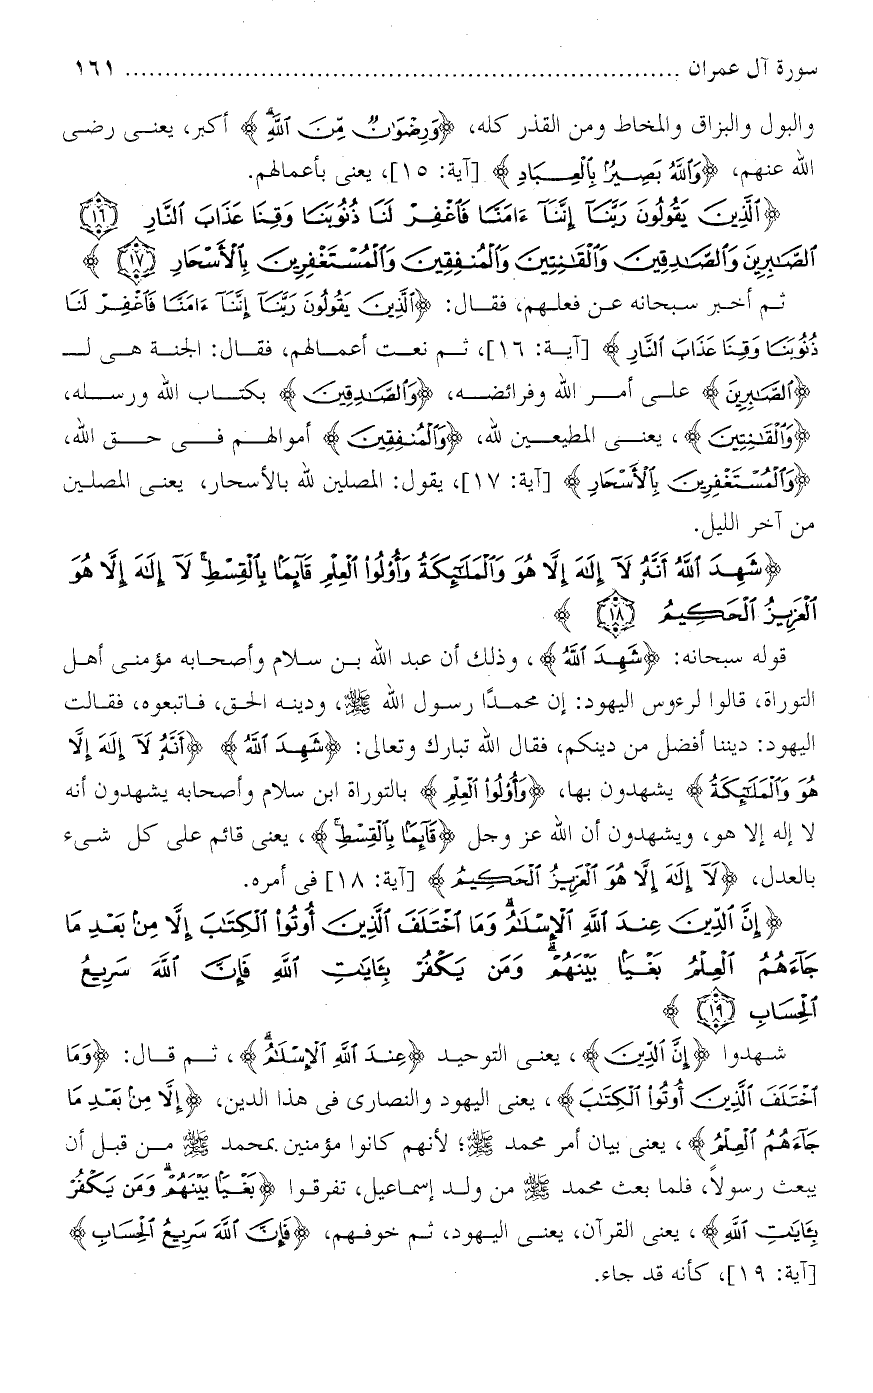 سورة آل عمران ........................................................................ ١٦١
والبول والبزاق والمخاط ومن القذر كله، ﴿وَرِضْوَانٌ مِّنَ ٱللَّهِ﴾ أكبر، يعنى رضى
الله عنهم، ﴿وَٱللَّهُ بَصِيرٌ بِٱلْعِبَادِ﴾ [آية: ١٥]، يعنى بأعمالهم.
﴿ٱلَّذِينَ يَقُولُونَ رَبَّنَآ إِنَّنَآ ءَامَنَّا فَٱغْفِرْ لَنَا ذُنُوبَنَا وَقِنَا عَذَابَ ٱلنَّارِ ١٦
ٱلصَّٰبِرِينَ وَٱلصَّٰدِقِينَ وَٱلْقَٰنِتِينَ وَٱلْمُنفِقِينَ وَٱلْمُسْتَغْفِرِينَ بِٱلْأَسْحَارِ ١٧﴾
ثم أخبر سبحانه عن فعلهم، فقال: ﴿ٱلَّذِينَ يَقُولُونَ رَبَّنَآ إِنَّنَآ ءَامَنَّا فَٱغْفِرْ لَنَا
ذُنُوبَنَا وَقِنَا عَذَابَ ٱلنَّارِ﴾ [آية: ١٦]، ثم نعت أعمالهم، فقال: الجنة هى لـ
﴿ٱلصَّٰبِرِينَ﴾ على أمر الله وفرائضه، ﴿وَٱلصَّٰدِقِينَ﴾ بكتاب الله ورسله،
﴿وَٱلْقَٰنِتِينَ﴾، يعنى المطيعين لله، ﴿وَٱلْمُنفِقِينَ﴾ أموالهم فى حق الله،
﴿وَٱلْمُسْتَغْفِرِينَ بِٱلْأَسْحَارِ﴾ [آية: ١٧]، يقول: المصلين لله بالأسحار، يعنى المصلين
من آخر الليل.
﴿شَهِدَ ٱللَّهُ أَنَّهُۥ لَآ إِلَٰهَ إِلَّا هُوَ وَٱلْمَلَٰٓئِكَةُ وَأُو۟لُوا۟ ٱلْعِلْمِ قَآئِمًۢا بِٱلْقِسْطِ ۚ لَآ إِلَٰهَ إِلَّا هُوَ
ٱلْعَزِيزُ ٱلْحَكِيمُ ١٨﴾
قوله سبحانه: ﴿شَهِدَ ٱللَّهُ﴾، وذلك أن عبد الله بن سلام وأصحابه مؤمنى أهل
التوراة، قالوا لرءوس اليهود: إن محمدًا رسول الله ﷺ، ودينه الحق، فاتبعوه، فقالت
اليهود: ديننا أفضل من دينكم، فقال الله تبارك وتعالى: ﴿شَهِدَ ٱللَّهُ﴾ ﴿أَنَّهُۥ لَآ إِلَٰهَ إِلَّا
هُوَ وَٱلْمَلَٰٓئِكَةُ﴾ يشهدون بها، ﴿وَأُو۟لُوا۟ ٱلْعِلْمِ﴾ بالتوراة ابن سلام وأصحابه يشهدون أنه
لا إله إلا هو، ويشهدون أن الله عز وجل ﴿قَآئِمًۢا بِٱلْقِسْطِ ۚ﴾، يعنى قائم على كل شىء
بالعدل، ﴿لَآ إِلَٰهَ إِلَّا هُوَ ٱلْعَزِيزُ ٱلْحَكِيمُ﴾ [آية: ١٨] فى أمره.
﴿إِنَّ ٱلدِّينَ عِندَ ٱللَّهِ ٱلْإِسْلَٰمُ ۗ وَمَا ٱخْتَلَفَ ٱلَّذِينَ أُوتُوا۟ ٱلْكِتَٰبَ إِلَّا مِنۢ بَعْدِ مَا
جَآءَهُمُ ٱلْعِلْمُ بَغْيًۢا بَيْنَهُمْ ۗ وَمَن يَكْفُرْ بِـَٔايَٰتِ ٱللَّهِ فَإِنَّ ٱللَّهَ سَرِيعُ
ٱلْحِسَابِ ١٩﴾
شهدوا ﴿إِنَّ ٱلدِّينَ﴾، يعنى التوحيد ﴿عِندَ ٱللَّهِ ٱلْإِسْلَٰمُ ۗ﴾، ثم قال: ﴿وَمَا
ٱخْتَلَفَ ٱلَّذِينَ أُوتُوا۟ ٱلْكِتَٰبَ﴾، يعنى اليهود والنصارى فى هذا الدين، ﴿إِلَّا مِنۢ بَعْدِ مَا
جَآءَهُمُ ٱلْعِلْمُ﴾، يعنى بيان أمر محمد ﷺ؛ لأنهم كانوا مؤمنين بمحمد ﷺ من قبل أن
يبعث رسولاً، فلما بعث محمد ﷺ من ولد إسماعيل، تفرقوا ﴿بَغْيًۢا بَيْنَهُمْ ۗ وَمَن يَكْفُرْ
بِـَٔايَٰتِ ٱللَّهِ﴾، يعنى القرآن، يعنى اليهود، ثم خوفهم، ﴿فَإِنَّ ٱللَّهَ سَرِيعُ ٱلْحِسَابِ﴾
[آية: ١٩]، كأنه قد جاء.